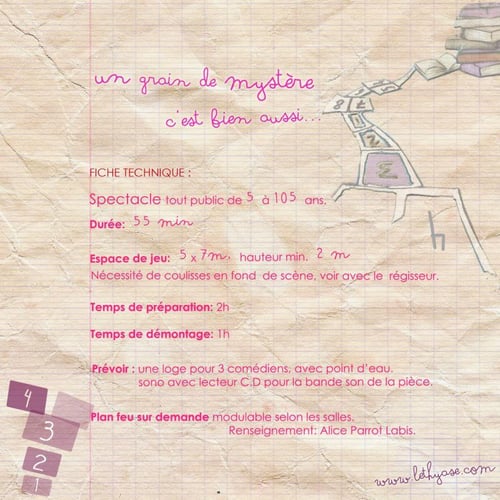 un grain de mystère
c'est bien aussi...
FICHE TECHNIQUE :
Spectacle tout public de 5 à 105 ans.
Durée: 55 min
Espace de jeu: 5 x 7m, hauteur min. 2 m
Nécessité de coulisses en fond de scène, voir avec le régisseur.
Temps de préparation: 2h
Temps de démontage: 1h
Prévoir : une loge pour 3 comédiens, avec point d'eau.
sono avec lecteur C.D pour la bande son de la pièce.
Plan feu sur demande modulable selon les salles.
Renseignement: Alice Parrot Labis.
4
3
2
1
www.lethyase.com